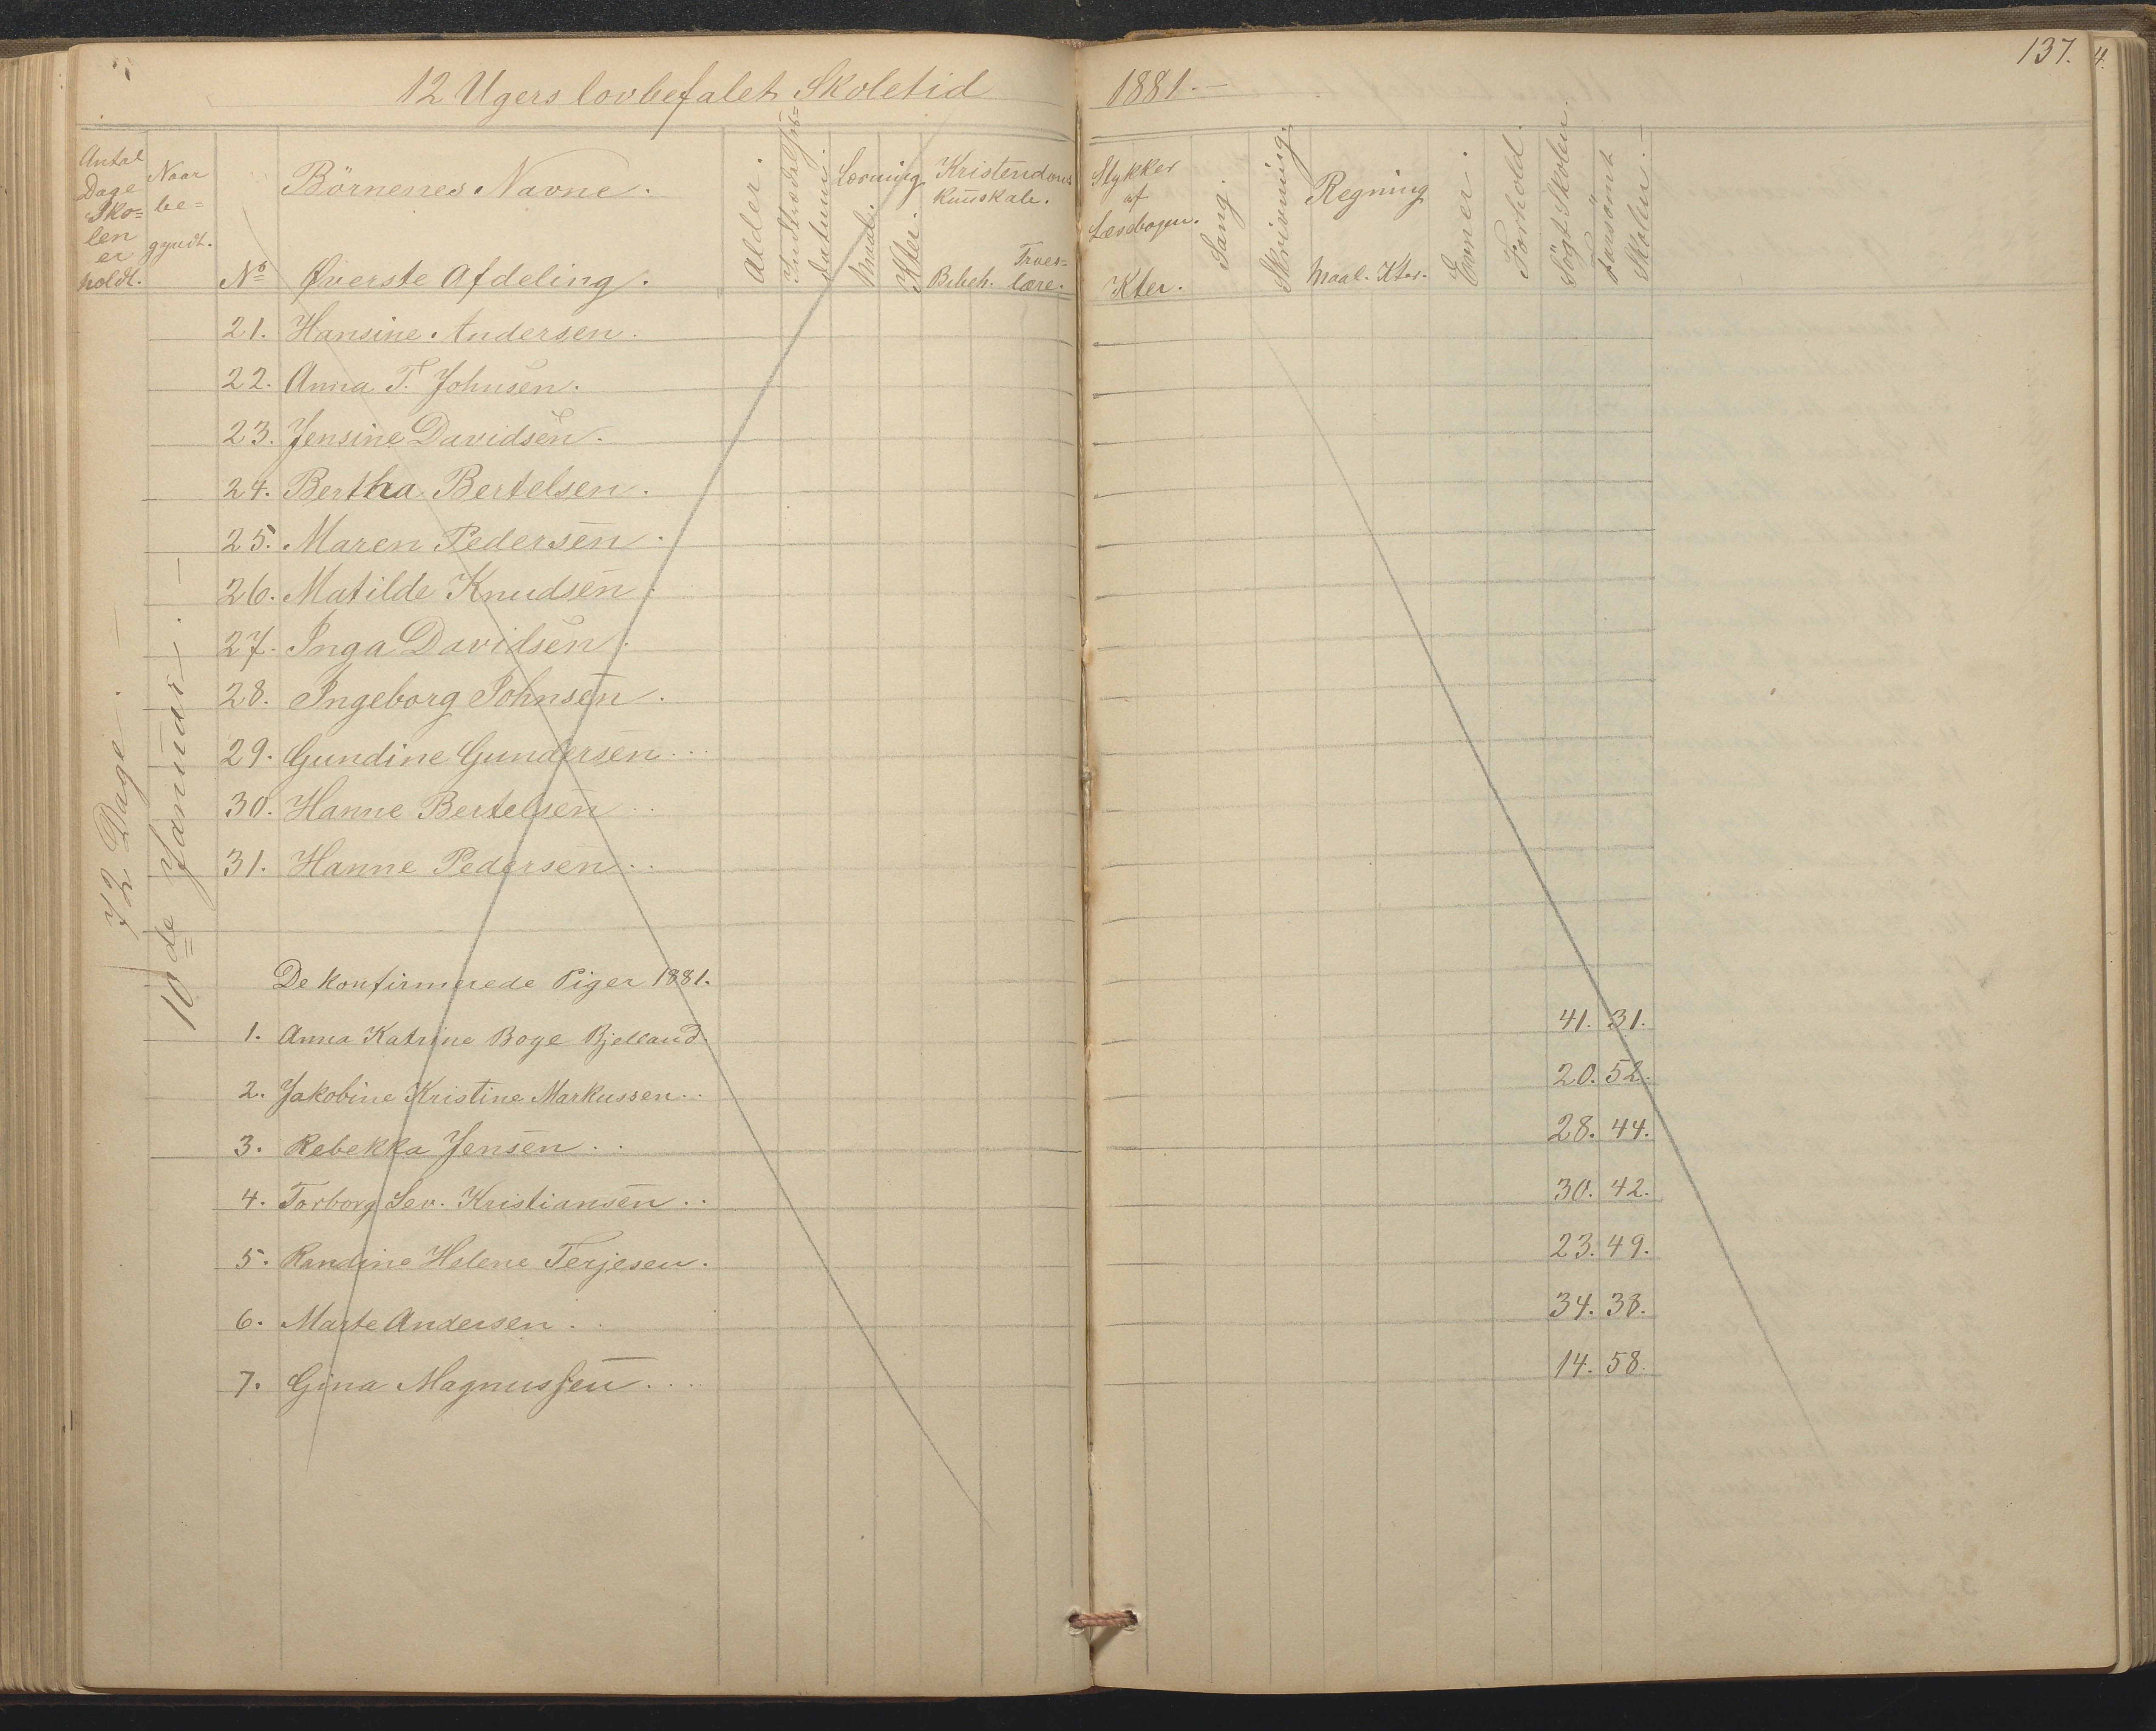 137.
4.
12 Ugers lovbefalet Skoletid 1881.—
Antal Dage Sko=len er holdt.
Naar be=gyndt.
No
Börnenes Navne.
Øverste Afdeling.
Alder.
Indtrædelses=datum.
Læsning
Maal.
Kter.
Kristendoms kunskab.
Bibelh.
Troes=lære.
Stykker af Læsebogen.
Kter.
Sang.
Skrivning.
Regning
Maal. Kter.
Evner.
Forhold.
Sögt Skolen.
Forsömt Skolen.—
72 Dage.—
10de Januar.—
21. Hansine Andersen.
22. Anna T. Johnsen.
23. Jensine Davidsen.
24. Bertha Bertelsen.
25. Maren Pedersen.
26. Matilde Knudsen.
27. Inga Davidsen.
28. Ingeborg Johnsen.
29. Gundine Gundersen...
30. Hanne Bertelsen..
31. Hanne Pedersen..
De konfirmerede Piger 1881.
1. Anna Katrine Boye Bjelland. 41. 31.
2. Jakobine Kristine Markussen.. 20. 52.
3. Rebekka Jensen.. 28. 44.
4. Torborg Sev. Kristiansen.. 30. 42.
5. Randine Helene Terjesen. 23. 49.
6. Marte Andersen.. 34. 38.
7. Gina Magnussen... 14. 58.